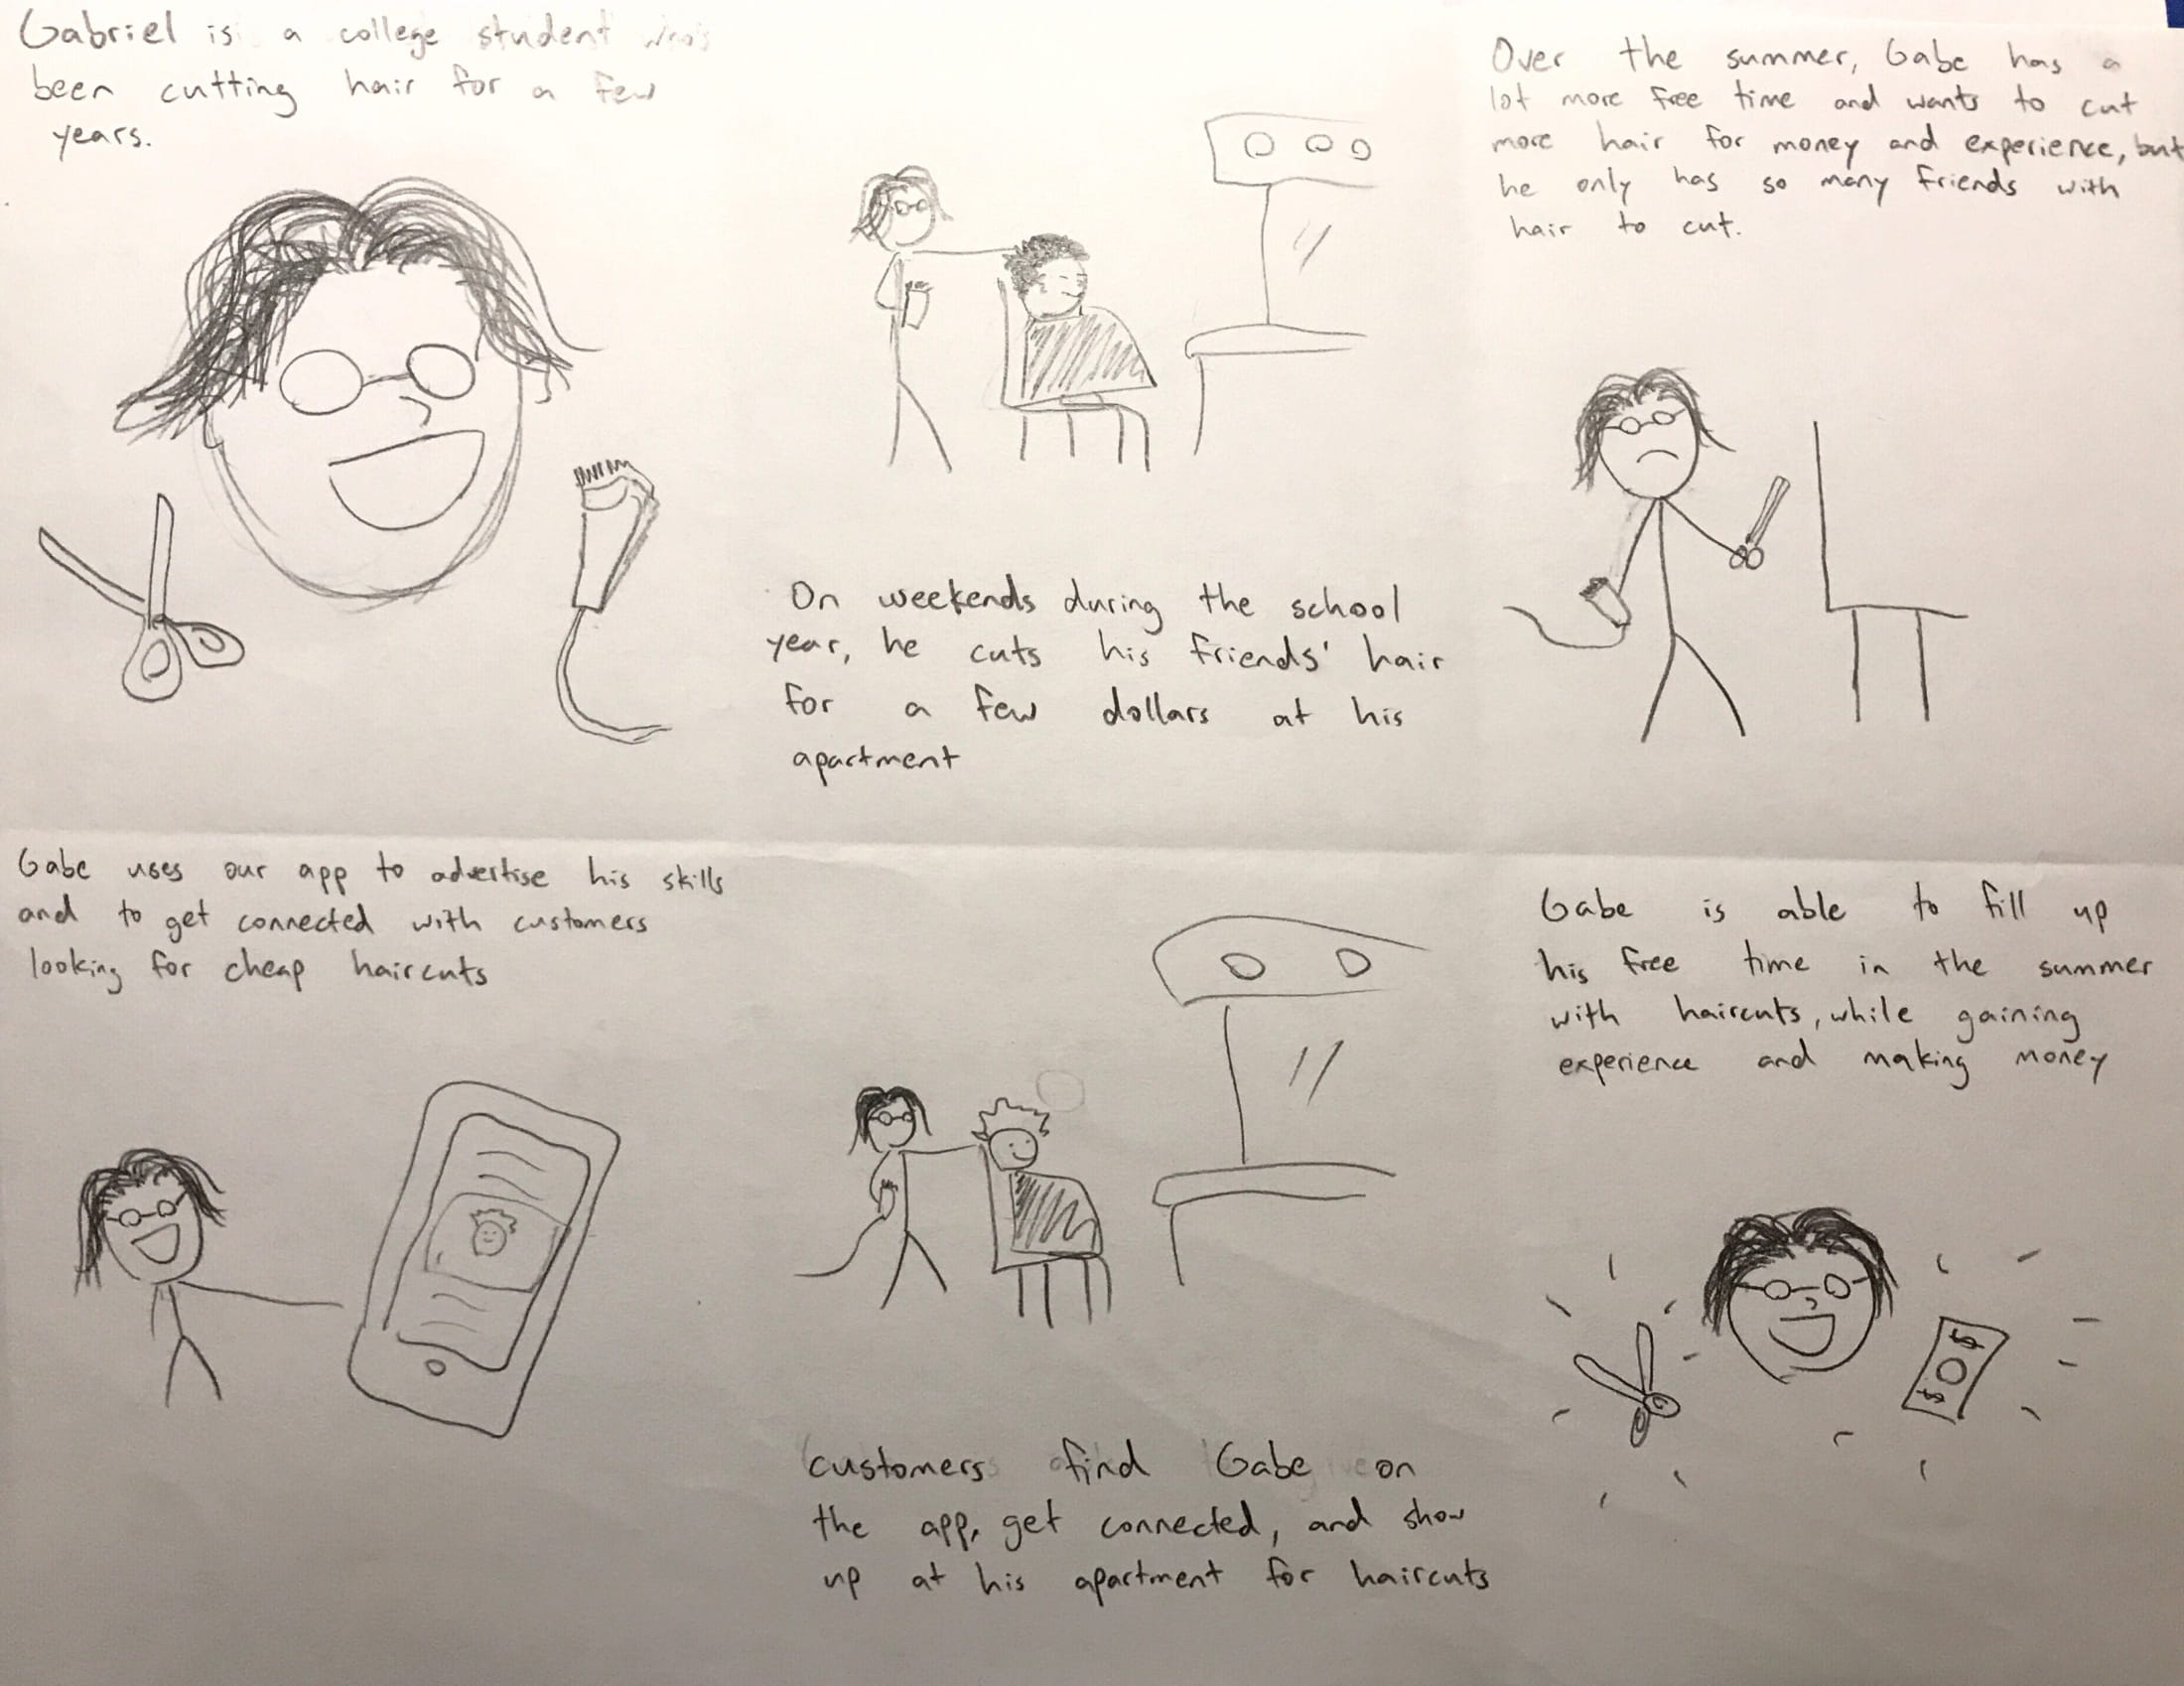 Gabriel is a college student who's
been cutting hair for a few
years.
On weekends during the school
year, he cuts his friends' hair
for a few dollars at his
apartment
Over the summer, Gabe has a
lot more free time and wants to cut
more hair for money and experience, but
he only has so many friends with
hair to cut.
Gabe uses our app to advertise his skills
and to get connected with customers
looking for cheap haircuts
customers find Gabe on
the app, get connected, and show
up at his apartment for haircuts
Gabe is able to fill up
his free time in the summer
with haircuts, while gaining
experience and making money
$ $